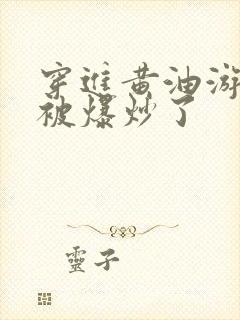 穿進黄油游
被爆炒了
靈子